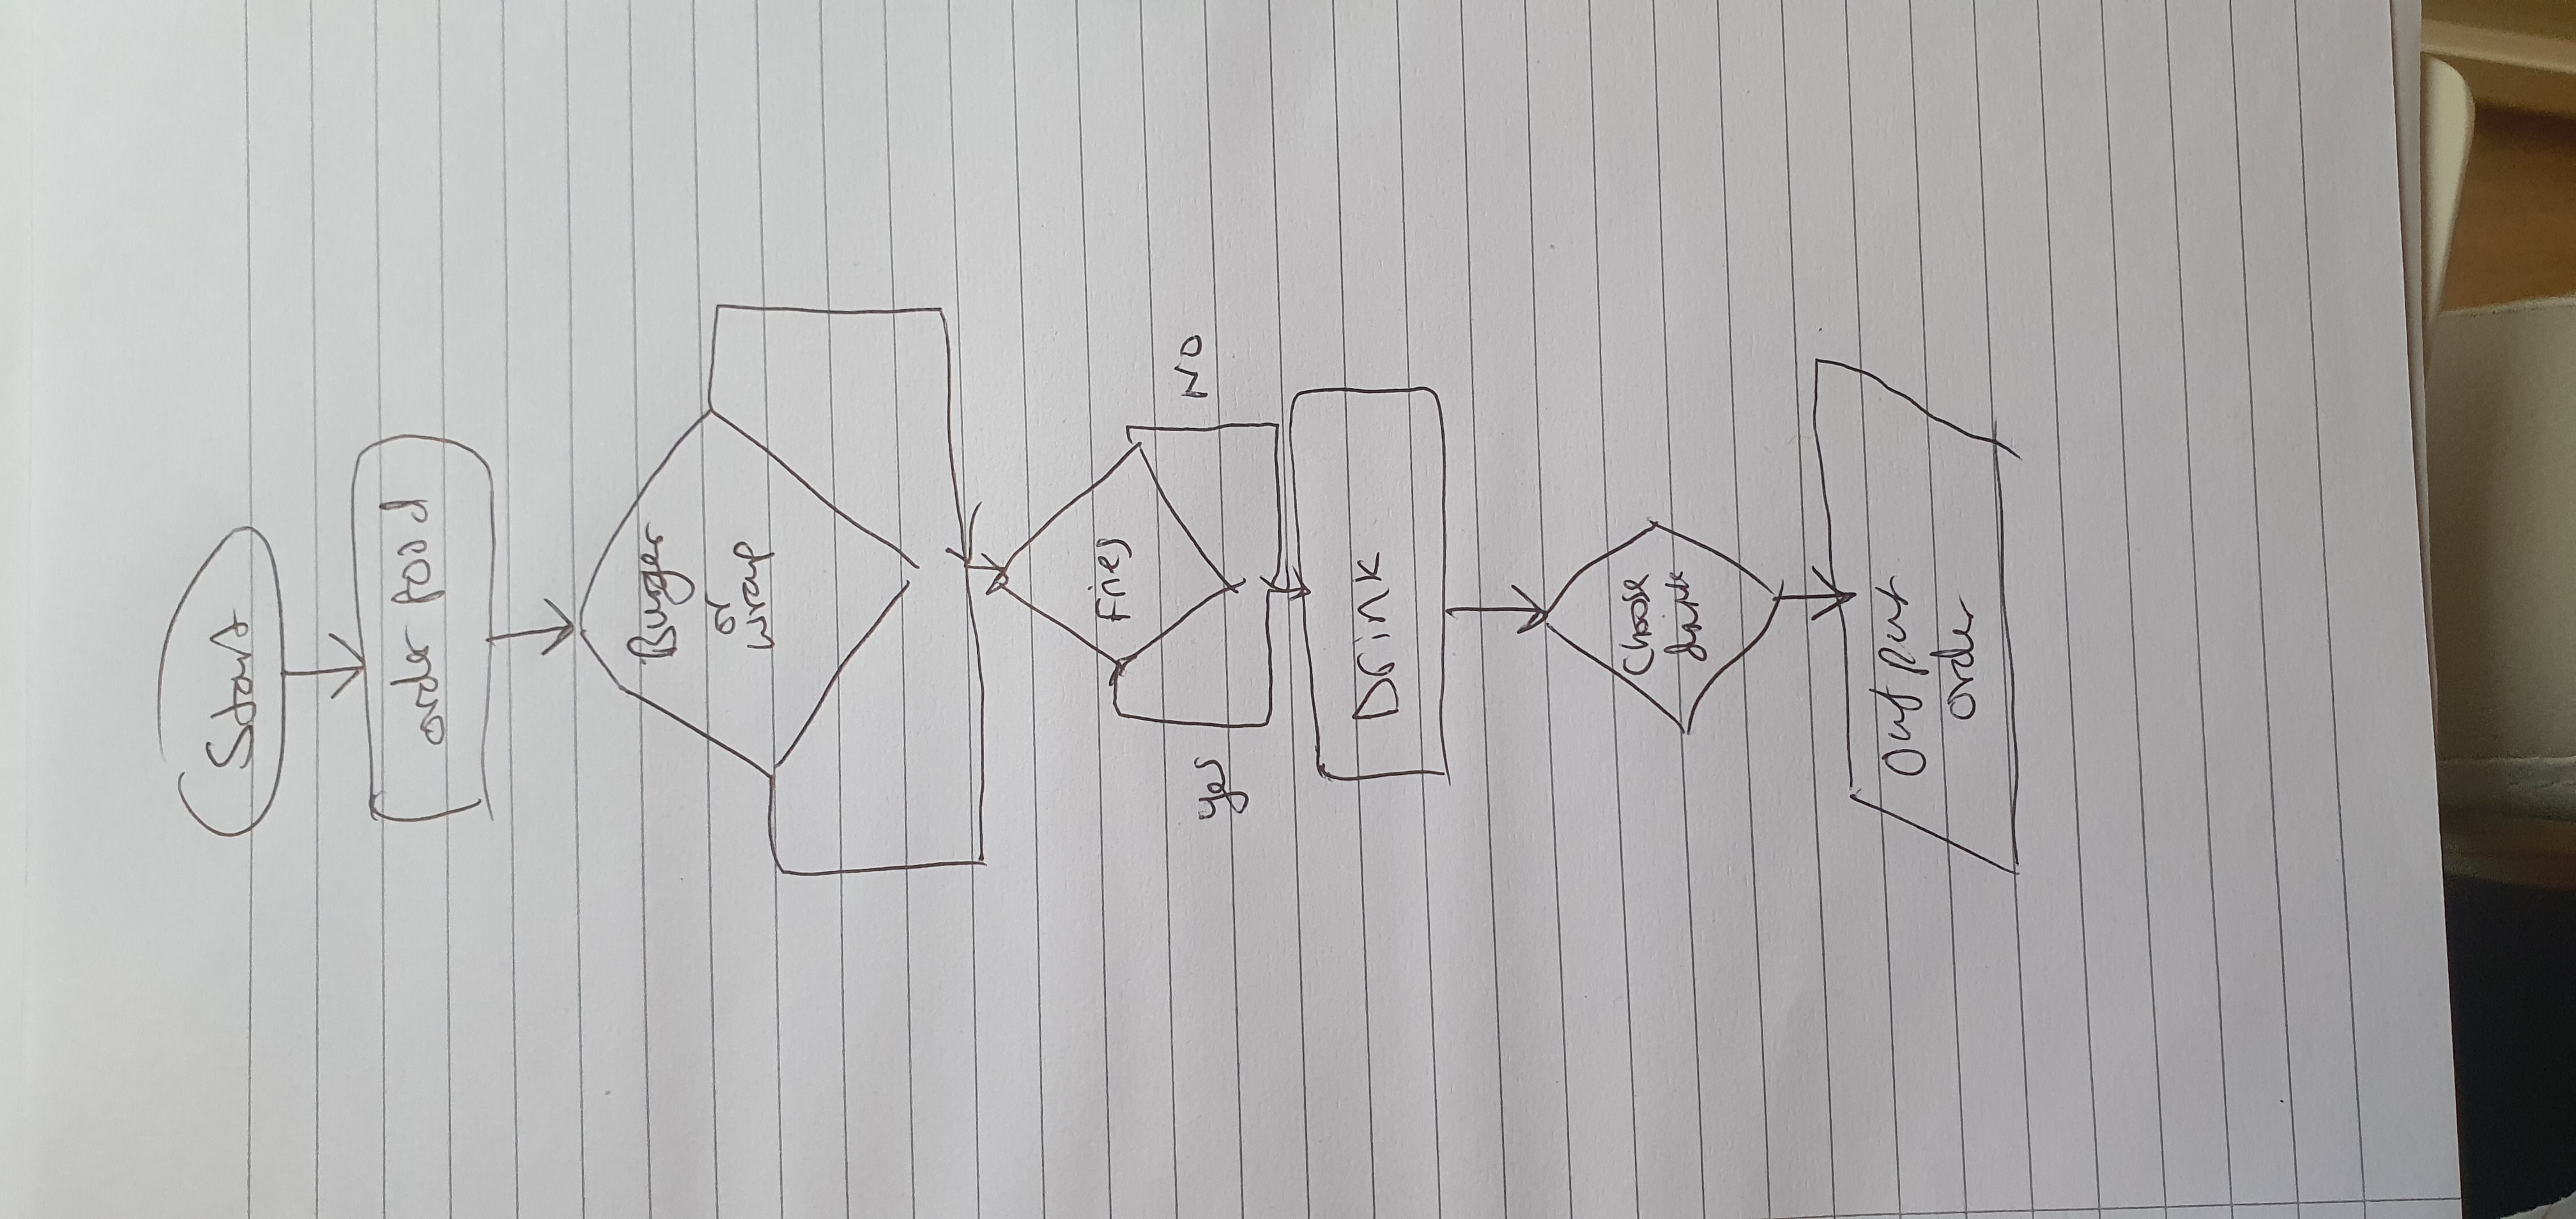 Start
order food
Burger
or
wrap
Fries
yes
NO
Drink
Choose
drink
Output
order